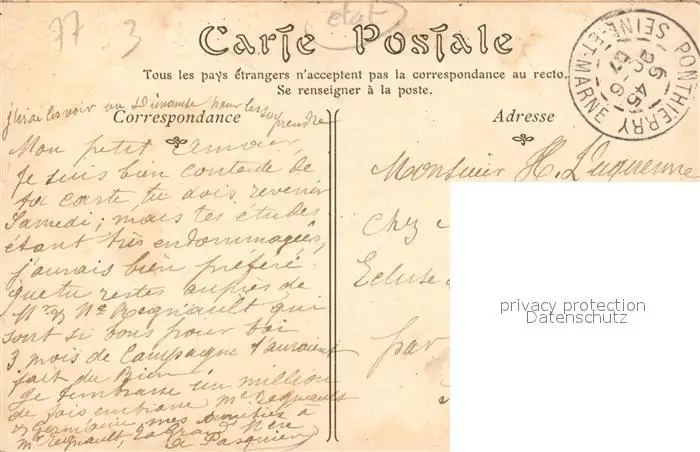 77 3 état
Carte Postale
Tous les pays étrangers n'acceptent pas la correspondance au recto.
Se renseigner à la poste.
j'irai les voir un Dimanche pour les sur
prendre
Correspondance
Mon petit amour,
Je suis bien contente de
ta carte, tu dois revenir
Samedi; mais tes études
étant très endommagées,
j'aurais bien préféré
que tu restes auprès de
Mr & Me Regnault qui
sont si bons pour toi
3 mois de Campagne t'auraient
fait du Bien
Je t'embrasse un million
de fois embrasse Me Regnault
& Germaine, mes amitiés à
Mr Regnault, ta Grand Mère
Le Pasquier
Adresse
Monsieur H. Luquenne
Chez
Ecluse
par
PONTHIERRY
SEINE-ET-MARNE
6 45
20 - 6
07
privacy protection
Datenschutz